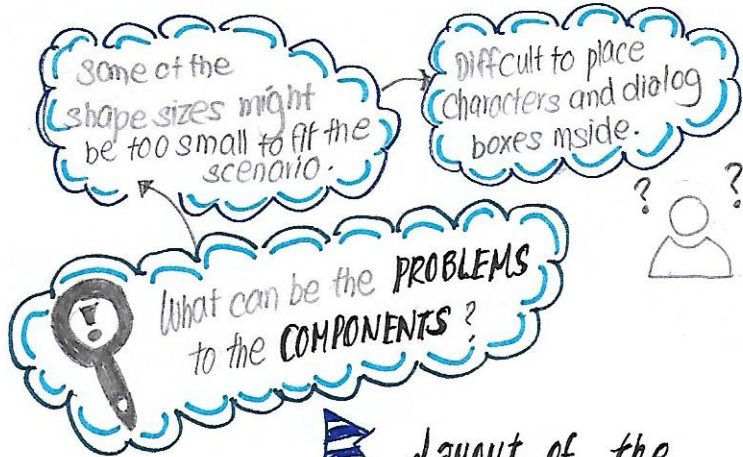 some of the
shape sizes might
be too small to fit the
scenario.
Diffcult to place
characters and dialog
boxes inside.
? ?
!
What can be the PROBLEMS
to the COMPONENTS?
Layout of the